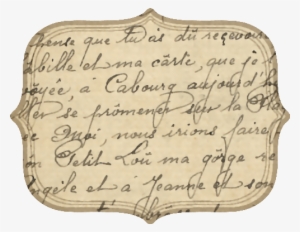 pense que tu as dû recevoir
bille et ma carte, que je
voyée, à Cabourg aujourd'h
ller se promener sur la Pla
e Moi, nous irions faire
on Petit Lou ma gorge re
Angèle et à Jeanne et son